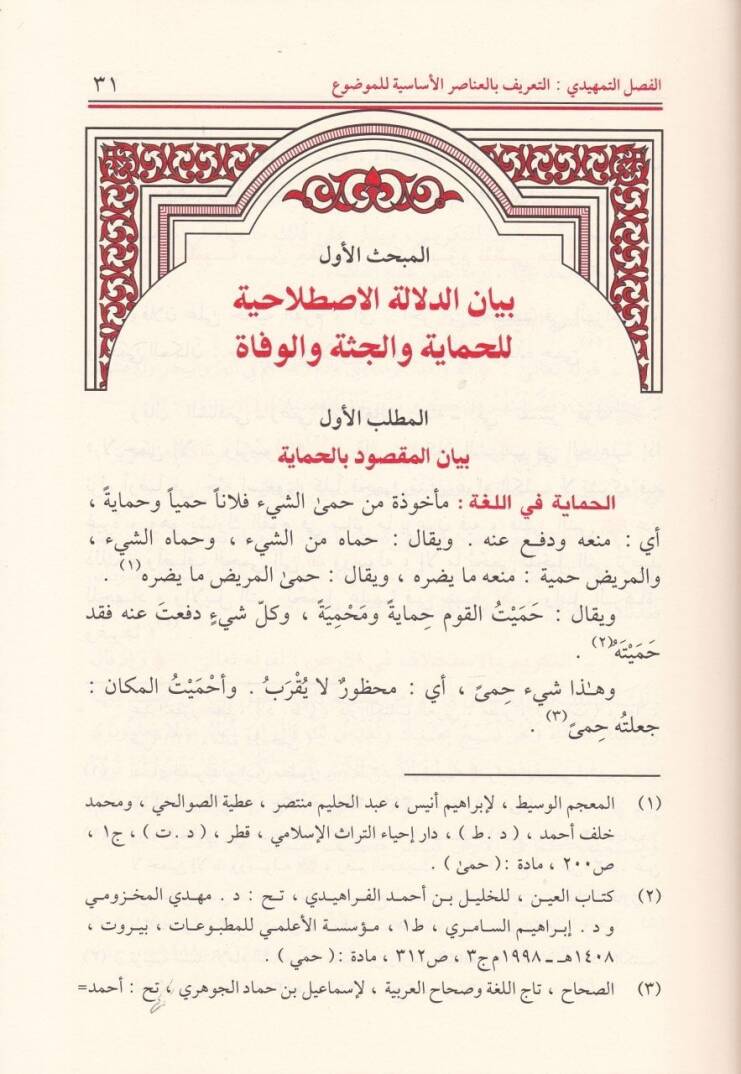 الفصل التمهيدي : التعريف بالعناصر الأساسية للموضوع ٣١
المبحث الأول
بيان الدلالة الاصطلاحية
للحماية والجثة والوفاة
المطلب الأول
بيان المقصود بالحماية
الحماية في اللغة : مأخوذة من حمىٰ الشيء فلاناً حمياً وحمايةً ،
أي : منعه ودفع عنه . ويقال : حماه من الشيء ، وحماه الشيء ،
والمريض حمية : منعه ما يضره ، ويقال : حمىٰ المريض ما يضره(١) .
ويقال : حَمَيْتُ القوم حِمايةً ومَحْمِيَةً ، وكلّ شيءٍ دفعتَ عنه فقد
حَمَيْتَهُ(٢) .
وهـٰذا شيء حِمىً ، أي : محظورٌ لا يُقْرَبُ . وأحْمَيْتُ المكان :
جعلتُه حِمىً(٣) .
(١) المعجم الوسيط ، لإبراهيم أنيس ، عبد الحليم منتصر ، عطية الصوالحي ، ومحمد
خلف أحمد ، ( د.ط ) ، دار إحياء التراث الإسلامي ، قطر ، ( د.ت ) ، ج١ ،
ص٢٠٠ ، مادة : ( حمىٰ ) .
(٢) كتاب العين ، للخليل بن أحمد الفراهيدي ، تـح : د . مهدي المخزومي
و د . إبراهيم السامري ، ط١ ، مؤسسة الأعلمي للمطبوعات ، بيروت ،
١٤٠٨هـ ـ ١٩٩٨م ج٣ ، ص٣١٢ ، مادة : ( حمي ) .
(٣) الصحاح ، تاج اللغة وصحاح العربية ، لإسماعيل بن حماد الجوهري ، تح : أحمد=